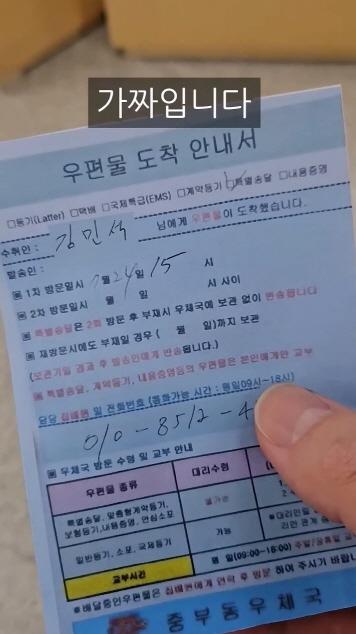 가짜입니다
우편물 도착 안내서
□등기(Latter) □택배 □국제특급(EMS) □계약등기 □특별송달 □내용증명
수취인 : 김민석 님에게 우편물이 도착했습니다.
발송인 :
▣ 1차 방문일시 7월 24일 15 시
▣ 2차 방문일시 월 일 시 사이
▣ 특별송달은 2회 방문 후 부재시 우체국에 보관 없이 반송됩니다
▣ 재방문시에도 부재일 경우 ( 월 일)까지 보관
(보관기일 경과 후 발송인에게 반송됩니다.)
▣ 특별송달, 계약등기, 내용증명등의 우편물은 본인에게만 교부
담당 집배원 및 전화번호 (통화가능 시간 : 평일09시~18시)
010-8512-4
▣ 우체국 방문 수령 및 교부 안내
우편물 종류 대리수령
특별송달, 맞춤형계약등기, 보험등기,내용증명, 안심소포 불가능
일반등기, 소포, 국제등기 가능 ●대리인
교부시간 평일(09:00~18:00) 주말/공휴일
●배달중인우편물은 집배원에게 연락 후 방문 하여 주시기 바랍니
중부동우체국